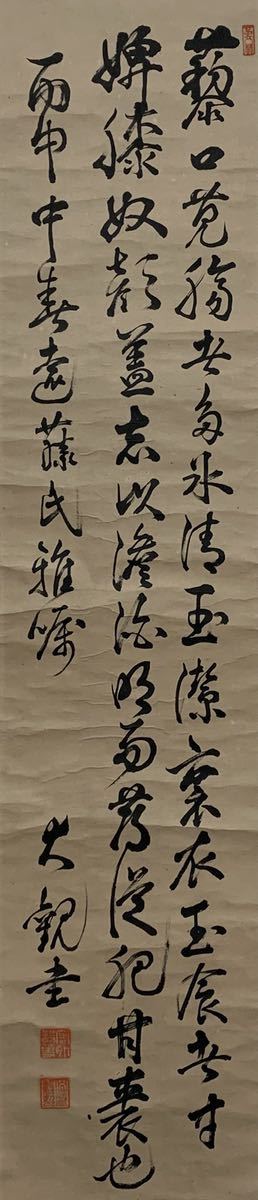 藜口莧腸者多氷清玉潔袞衣玉食者甘
婢膝奴顔蓋志以澹泊明而節從肥甘喪也
丙申中春遠藤氏雅嘱
大觀書